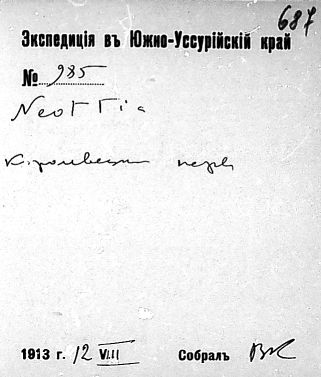 687
Экспедиція въ Южно-Уссурійскій край
№ 985
Neottia
1913 г. 12 VIII Собралъ ВК